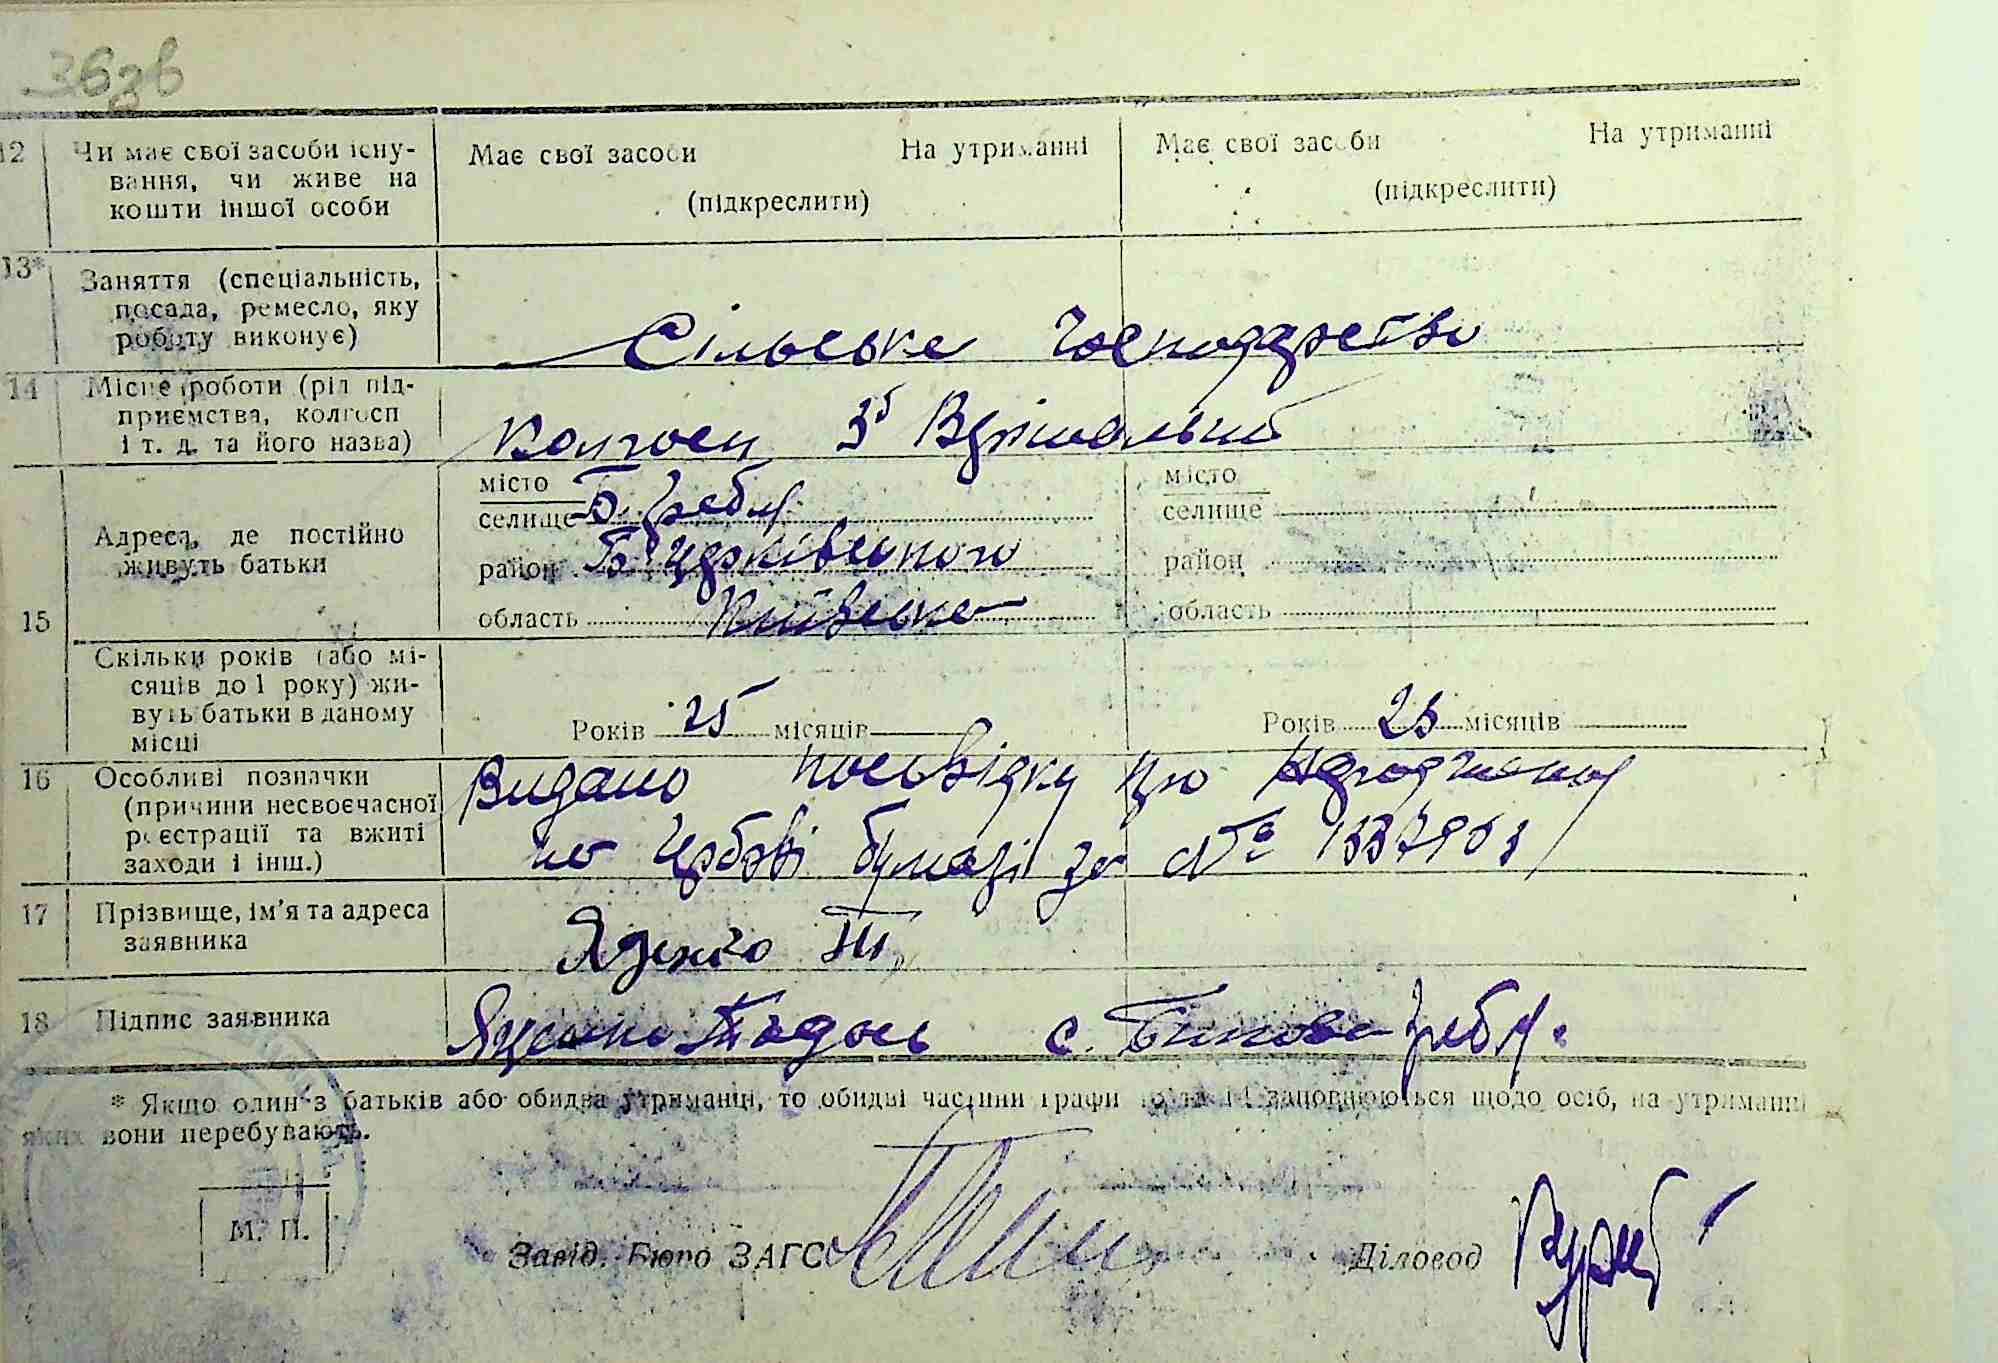 36зв
12 Чи має свої засоби існу- Має свої засоби На утриманні Має свої засоби На утриманні
вання, чи живе на (підкреслити) (підкреслити)
кошти іншої особи
13* Заняття (спеціальність,
посада, ремесло, яку Сільське господарство
роботу виконує)
14 Місце роботи (рід під-
приємства, колгосп Колгосп
і т. д. та його назва)
місто місто
селище Б. Гребля селище
Адреса, де постійно
живуть батьки район Б Церківського район
15 область Київська область
Скільки років (або мі-
сяців до 1 року) жи-
вуть батьки в даному Років 25 місяців Років 25 місяців
місці
16 Особливі позначки Видано посвідку про народження
(причини несвоєчасної
реєстрації та вжиті на гербові бумазі за №
заходи і інш.)
17 Прізвище, ім'я та адреса
заявника
18 Підпис заявника с. Бикова Гребля.
* Якщо один з батьків або обидва утриманці, то обидві частини графи заповнюються щодо осіб, на утриманні
яких вони перебувають.
М. П.
Завід. Бюро ЗАГС Діловод